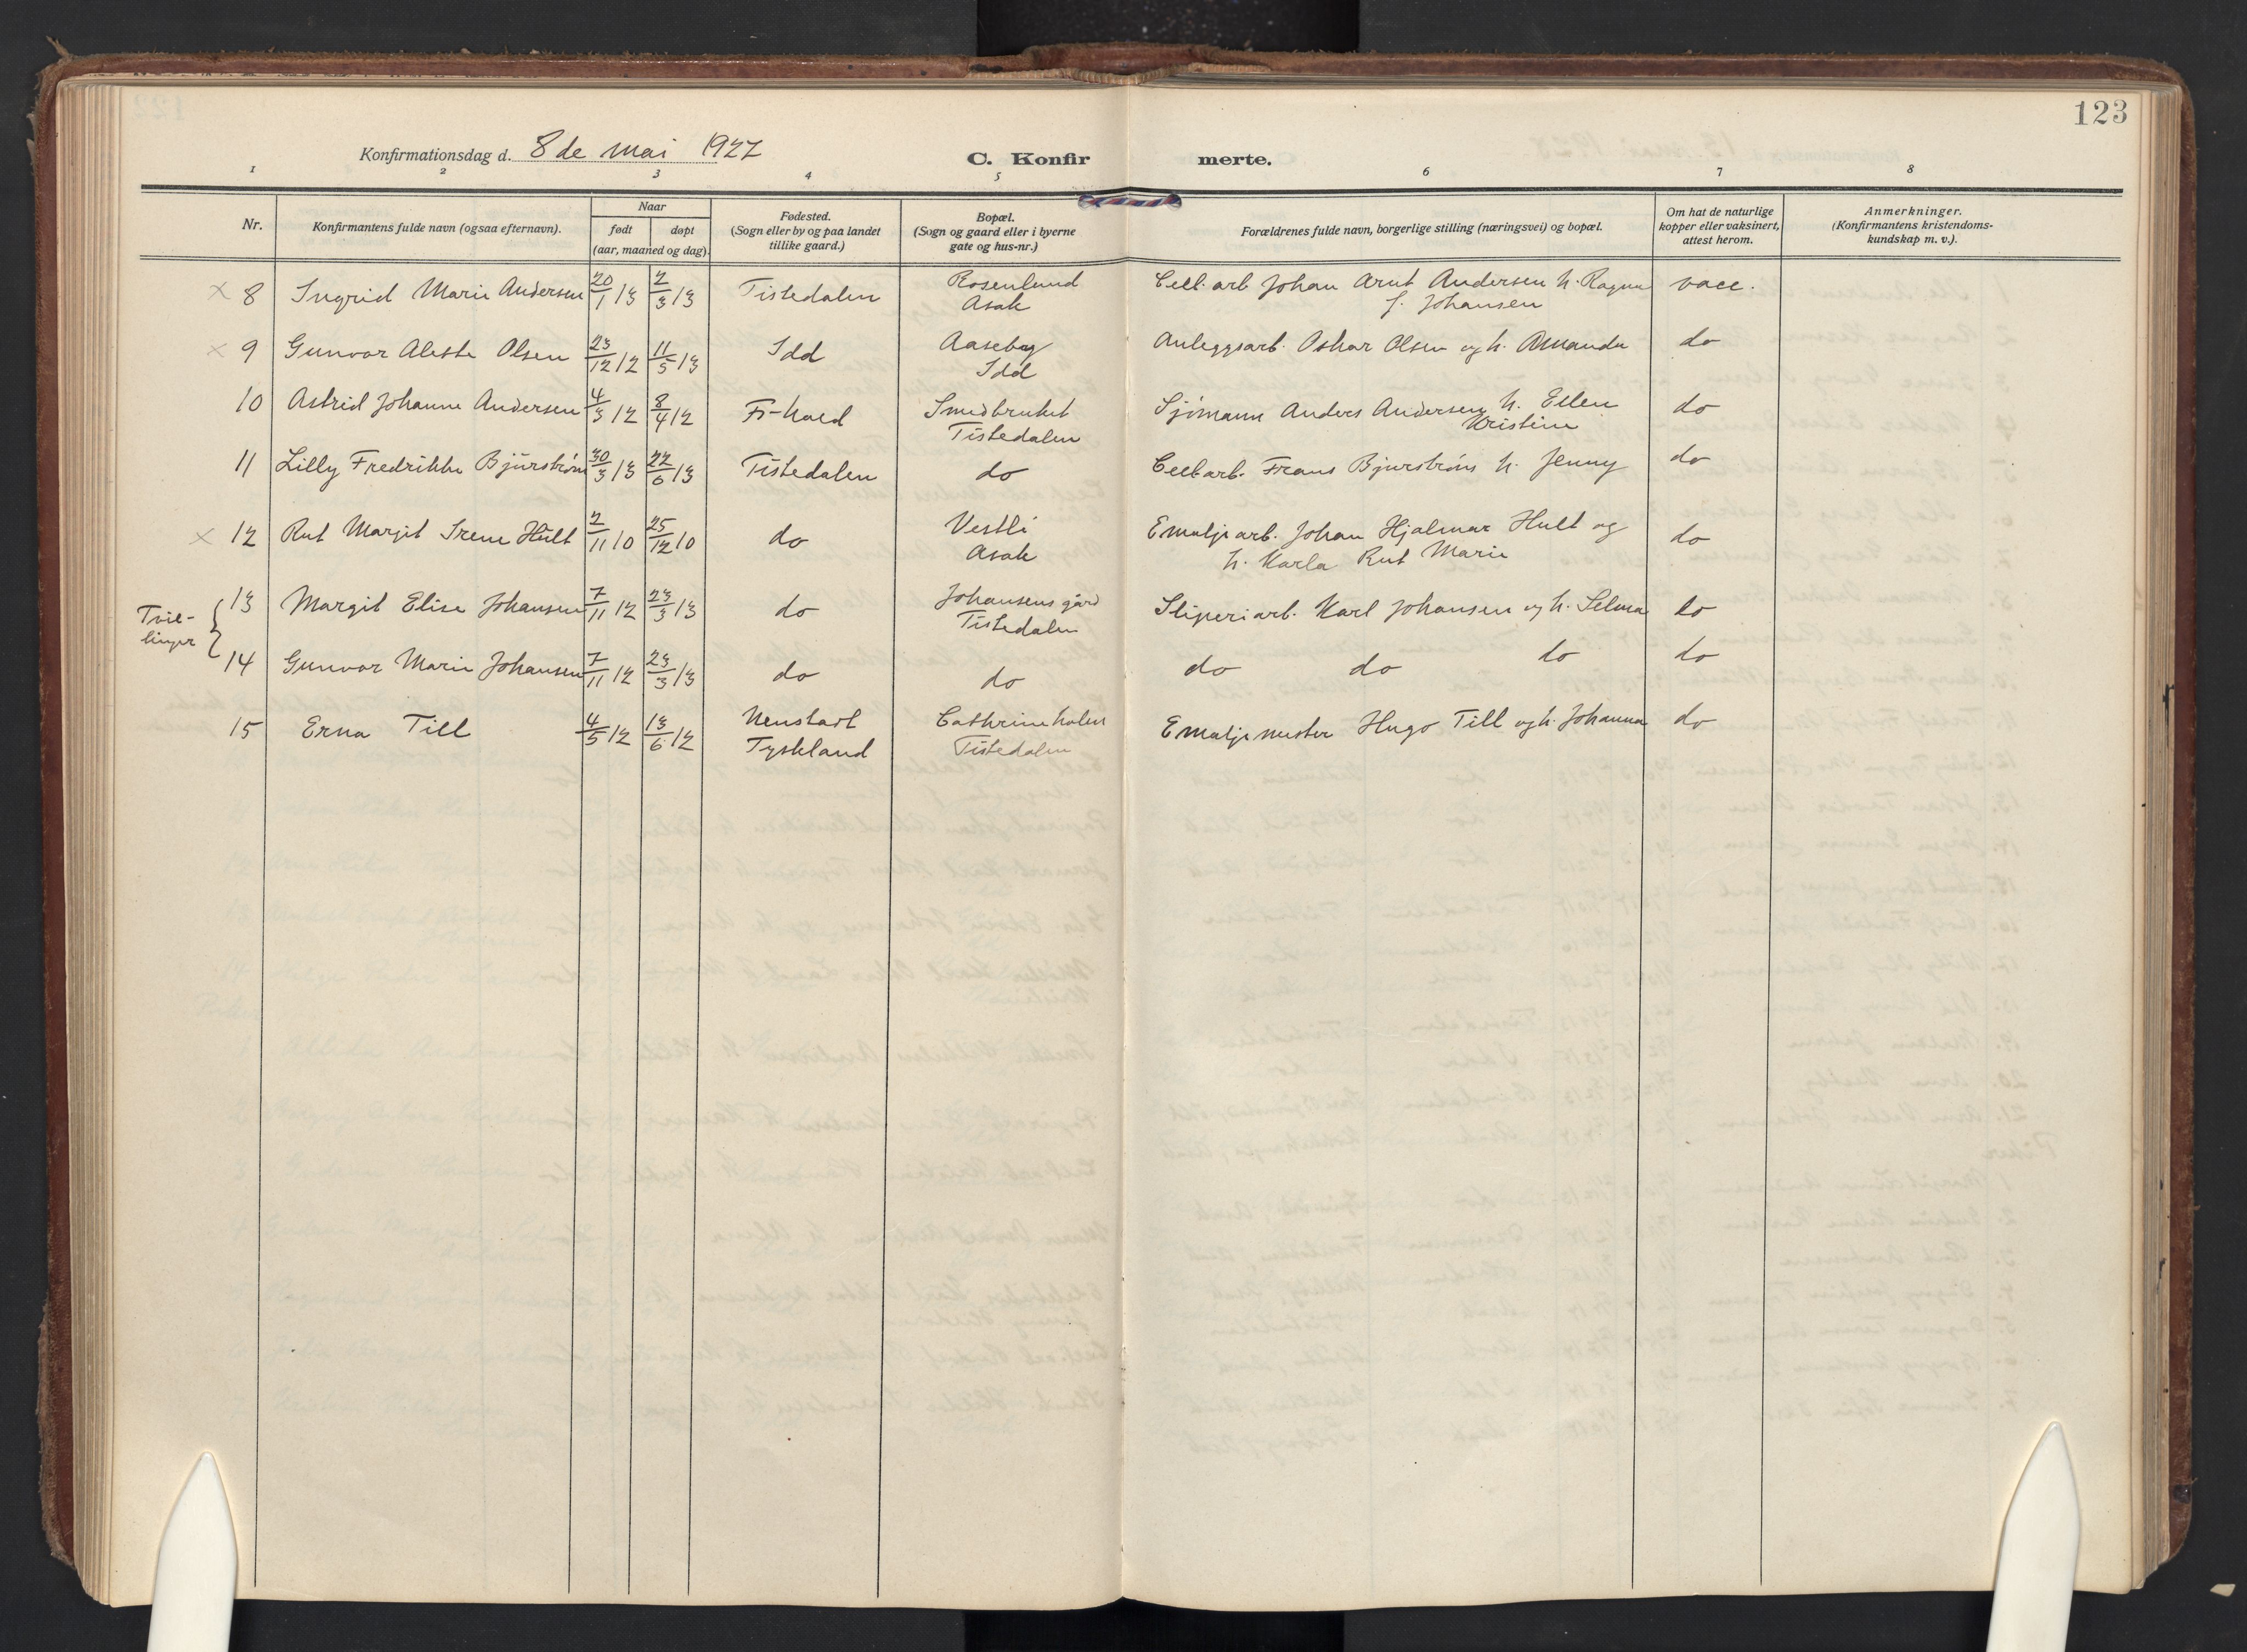 123
Konfirmationsdag d. 8 de mai 1927
C. Konfir merte.
1 2 3 4 5 6 7 8
Nr.
Konfirmantens fulde navn (ogsaa efternavn).
Naar
født døpt
(aar, maaned og dag).
Fødested.
(Sogn eller by og paa landet
tillike gaard.)
Bopæl.
(Sogn og gaard eller i byerne
gate og hus-nr.)
Forældrenes fulde navn, borgerlige stilling (næringsvei) og bopæl.
Om hat de naturlige
kopper eller vaksinert,
attest herom.
Anmerkninger.
(Konfirmantens kristendoms-
kundskap m. v.).
x 8 Ingrid Marie Andersen 20/1 13 2/3 13 Tistedalen Rosenlund Cell. arb Johan Arnt Andersen h. Ragna vacc.
Asak J. Johansen
x 9 Gunvor Aleste Olsen 23/12 12 11/5 13 Idd Aasebog Anleggsarb. Oskar Olsen og h. Amanda do
Idd
10 Astrid Johanne Andersen 4/3 12 8/4 12 Fr-hald Smedbruket Sjömann Anders Andersen h. Ellen do
Tistedalen Kristine
11 Lilly Fredrikke Bjurström 30/3 13 22/6 13 Tistedalen do Cell arb. Frans Bjurström h. Jenny do
x 12 Rut Margit Irene Hult 2/11 10 25/12 10 do Vestli Emaljearb. Johan Hjalmar Hult og do
Asak h. Karla Rut Marie
Tvil-
linger
13 Margit Elise Johansen 7/11 12 23/3 13 do Johansens gård Sliperiarb. Karl Johansen og h. Selma do
Tistedalen
14 Gunvor Marie Johansen 7/11 12 23/3 13 do do do do do do
15 Erna Till 4/5 12 13/6 12 Neustadt Cathrineholm Emaljemester Hugo Till og h. Johanna do
Tyskland Tistedalen